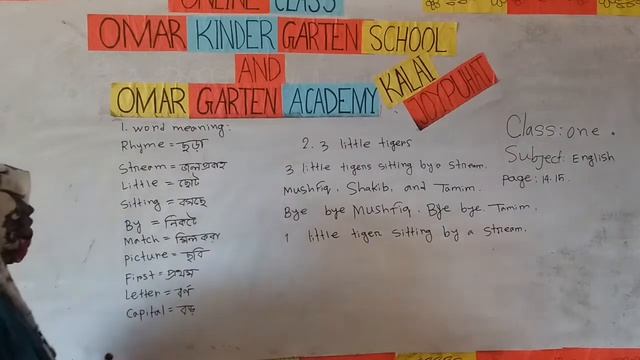 ONLINE CLASS
OMAR KINDER GARTEN SCHOOL
AND
OMAR GARTEN ACADEMY
KALAI
JOYPUHAT
1. word meaning:
Rhyme = ছড়া
Stream = জলপ্রবাহ
Little = ছোট
Sitting = বসছে
By = নিকটে
Match = মিল করা
picture = ছবি
First = প্রথম
Letter = বর্ণ
Capital = বড়
2. 3 little tigers
3 little tigers sitting by a stream.
Mushfiq, Shakib, and Tamim.
Bye bye Mushfiq. Bye bye. Tamim.
1 little tiger sitting by a stream.
Class: one.
Subject: English
page: 14.15.